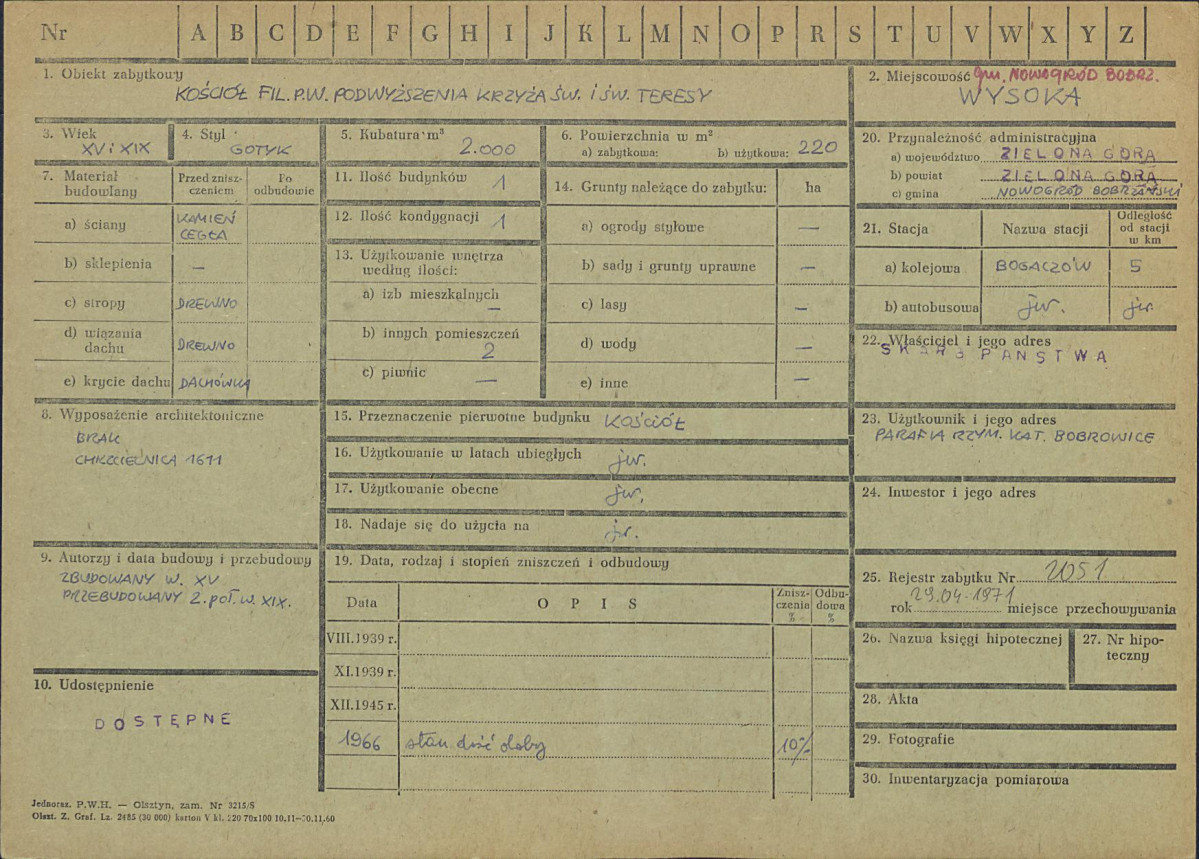 Nr A B C D E F G H I J K L M N O P R S T U V W X Y Z
1. Obiekt zabytkowy
KOŚCIÓŁ FIL. P.W. PODWYŻSZENIA KRZYŻA ŚW. I ŚW. TERESY
2. Miejscowość gm. NOWOGRÓD BOBRZ.
WYSOKA
3. Wiek
XV i XIX
4. Styl
GOTYK
5. Kubatura m³
2.000
6. Powierzchnia w m²
a) zabytkowa: b) użytkowa: 220
7. Materiał budowlany
Przed zniszczeniem
Po odbudowie
a) ściany KAMIEŃ
CEGŁA
b) sklepienia —
c) stropy DREWNO
d) wiązania dachu DREWNO
e) krycie dachu DACHÓWKA
8. Wyposażenie architektoniczne
BRAK
CHRZCIELNICA 1611
9. Autorzy i data budowy i przebudowy
ZBUDOWANY W. XV
PRZEBUDOWANY 2. POŁ. W. XIX.
10. Udostępnienie
DOSTĘPNE
11. Ilość budynków 1
12. Ilość kondygnacji 1
13. Użytkowanie wnętrza
według ilości:
a) izb mieszkalnych
—
b) innych pomieszczeń
2
c) piwnic —
14. Grunty należące do zabytku: ha
a) ogrody stylowe —
b) sady i grunty uprawne —
c) lasy —
d) wody —
e) inne —
15. Przeznaczenie pierwotne budynku KOŚCIÓŁ
16. Użytkowanie w latach ubiegłych jw.
17. Użytkowanie obecne jw.
18. Nadaje się do użycia na jw.
19. Data, rodzaj i stopień zniszczeń i odbudowy
Data OPIS Zniszczenia % Odbudowa %
VIII.1939 r.
XI.1939 r.
XII.1945 r.
1966 stan dość słaby 10%
20. Przynależność administracyjna
a) województwo ZIELONA GÓRA
b) powiat ZIELONA GÓRA
c) gmina NOWOGRÓD BOBRZAŃSKI
21. Stacja Nazwa stacji Odległość
od stacji
w km
a) kolejowa BOGACZÓW 5
b) autobusowa jw. jw.
22. Właściciel i jego adres
SKARB PAŃSTWA
23. Użytkownik i jego adres
PARAFIA RZYM. KAT. BOBROWICE
24. Inwestor i jego adres
25. Rejestr zabytku Nr 2051
rok 29.04.1971 miejsce przechowywania
26. Nazwa księgi hipotecznej
27. Nr hipoteczny
28. Akta
29. Fotografie
30. Inwentaryzacja pomiarowa
Jednoraz. P.W.H. — Olsztyn, zam. Nr 3215/S
Olszt. Z. Graf. Lz. 2485 (30 000) karton V kl. 220 70x100 10.11—20.11.60